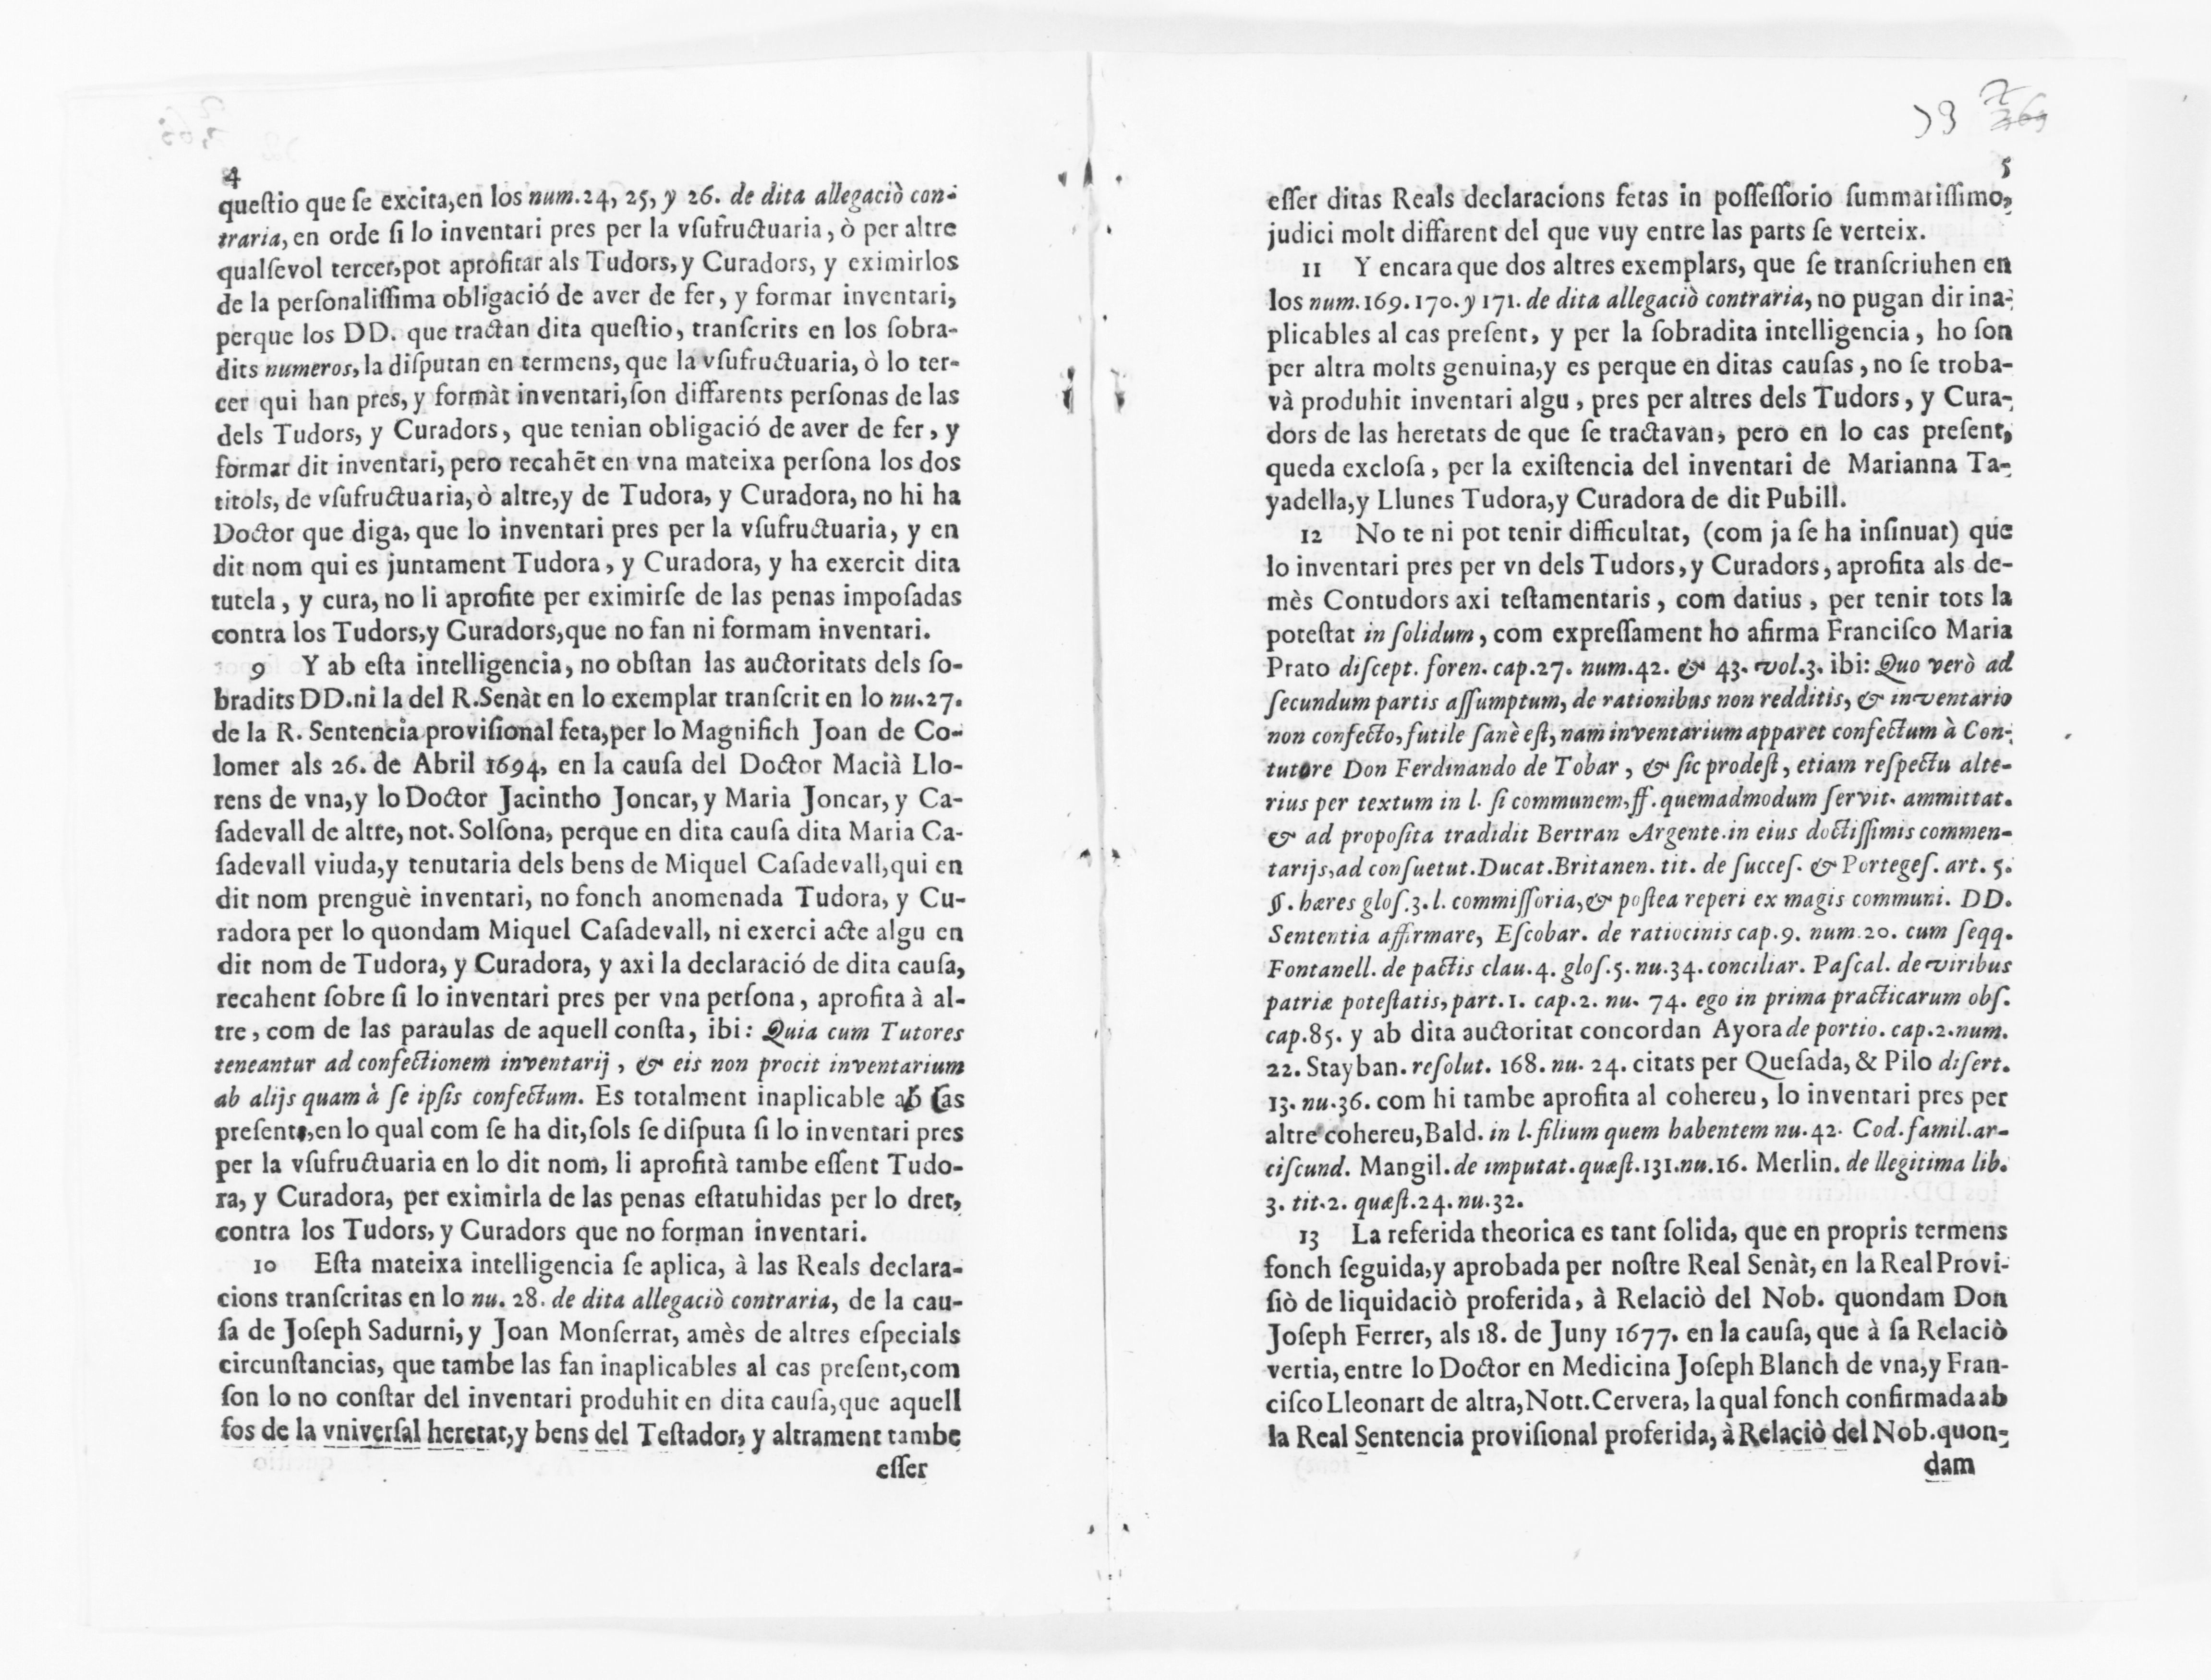 4
queſtio que ſe excita,en los num.24, 25, y 26. de dita allegaciò con-
traria, en orde ſi lo inventari pres per la vſufructuaria, ò per altre
qualſevol tercer,pot aprofitar als Tudors, y Curadors, y eximirlos
de la perſonaliſſima obligació de aver de fer, y formar inventari,
perque los DD. que tractan dita queſtio, tranſcrits en los ſobra-
dits numeros, la diſputan en termens, que la vſufructuaria, ò lo ter-
cer qui han pres, y formàt inventari, ſon differents perſonas de las
dels Tudors, y Curadors, que tenian obligació de aver de fer, y
formar dit inventari, pero recahēt en vna mateixa perſona los dos
titols, de vſufructuaria, ò altre,y de Tudora, y Curadora, no hi ha
Doctor que diga, que lo inventari pres per la vſufructuaria, y en
dit nom qui es juntament Tudora, y Curadora, y ha exercit dita
tutela, y cura, no li aprofite per eximirſe de las penas impoſadas
contra los Tudors,y Curadors,que no fan ni formam inventari.
9 Y ab eſta intelligencia, no obſtan las auctoritats dels ſo-
bradits DD.ni la del R.Senàt en lo exemplar tranſcrit en lo nu.27.
de la R. Sentencia proviſional feta,per lo Magnifich Joan de Co-
lomer als 26. de Abril 1694, en la cauſa del Doctor Macià Llo-
rens de vna,y lo Doctor Jacintho Joncar, y Maria Joncar, y Ca-
ſadevall de altre, not. Solſona, perque en dita cauſa dita Maria Ca-
ſadevall viuda,y tenutaria dels bens de Miquel Caſadevall,qui en
dit nom prenguè inventari, no fonch anomenada Tudora, y Cu-
radora per lo quondam Miquel Caſadevall, ni exerci acte algu en
dit nom de Tudora, y Curadora, y axi la declaració de dita cauſa,
recahent ſobre ſi lo inventari pres per vna perſona, aprofita à al-
tre, com de las paraulas de aquell conſta, ibi: Quia cum Tutores
teneantur ad confectionem inventarij, & eis non procit inventarium
ab alijs quam à ſe ipſis confectum. Es totalment inaplicable ab Cas
preſent,en lo qual com ſe ha dit,ſols ſe diſputa ſi lo inventari pres
per la vſufructuaria en lo dit nom, li aprofità tambe eſſent Tudo-
ra, y Curadora, per eximirla de las penas eſtatuhidas per lo dret,
contra los Tudors, y Curadors que no forman inventari.
10 Eſta mateixa intelligencia ſe aplica, à las Reals declara-
cions tranſcritas en lo nu. 28. de dita allegaciò contraria, de la cau-
ſa de Joſeph Sadurni, y Joan Monſerrat, amès de altres eſpecials
circunſtancias, que tambe las fan inaplicables al cas preſent,com
ſon lo no conſtar del inventari produhit en dita cauſa,que aquell
fos de la vniverſal heretat,y bens del Teſtador, y altrament tambe
eſſer
39 369
5
eſſer ditas Reals declaracions fetas in poſſeſſorio ſummatiſſimo,
judici molt different del que vuy entre las parts ſe verteix.
11 Y encara que dos altres exemplars, que ſe tranſcriuhen en
los num.169.170. y 171. de dita allegaciò contraria, no pugan dir ina-
plicables al cas preſent, y per la ſobradita intelligencia, ho ſon
per altra molts genuina,y es perque en ditas cauſas, no ſe troba-
và produhit inventari algu, pres per altres dels Tudors, y Cura-
dors de las heretats de que ſe tractavan, pero en lo cas preſent,
queda excloſa, per la exiſtencia del inventari de Marianna Ta-
yadella,y Llunes Tudora,y Curadora de dit Pubill.
12 No te ni pot tenir difficultat, (com ja ſe ha inſinuat) que
lo inventari pres per vn dels Tudors,y Curadors, aprofita als de-
mès Contudors axi teſtamentaris, com datius, per tenir tots la
poteſtat in ſolidum, com expreſſament ho afirma Franciſco Maria
Prato diſcept. foren. cap.27. num.42. & 43. vol.3. ibi: Quo verò ad
ſecundum partis aſſumptum, de rationibus non redditis, & inventario
non confecto, futile ſanè eſt, nam inventarium apparet confectum à Con-
tutore Don Ferdinando de Tobar, & ſic prodeſt, etiam reſpectu alte-
rius per textum in l. ſi communem,ff. quemadmodum ſervit. ammittat.
& ad propoſita tradidit Bertran Argente.in eius doctiſſimis commen-
tarijs,ad conſuetut.Ducat.Britanen. tit. de ſucceſ. & Portegeſ. art. 5.
§. hæres gloſ.3.l. commiſſoria,& poſtea reperi ex magis communi. DD.
Sententia affirmare, Eſcobar. de ratiocinis cap.9. num.20. cum ſeqq.
Fontanell. de pactis clau.4. gloſ.5. nu.34. conciliar. Paſcal. de viribus
patriæ poteſtatis, part.1. cap.2. nu. 74. ego in prima practicarum obſ.
cap.85. y ab dita auctoritat concordan Ayora de portio. cap.2.num.
22. Stayban. reſolut. 168. nu. 24. citats per Queſada, & Pilo diſert.
13. nu.36. com hi tambe aprofita al cohereu, lo inventari pres per
altre cohereu,Bald. in l. filium quem habentem nu.42. Cod.famil.ar-
ciſcund. Mangil. de imputat. quæſt.131.nu.16. Merlin. de llegitima lib.
3. tit.2. quæſt.24. nu.32.
13 La referida theorica es tant ſolida, que en propris termens
fonch ſeguida,y aprobada per noſtre Real Senàt, en la Real Provi-
ſiò de liquidaciò proferida, à Relaciò del Nob. quondam Don
Joſeph Ferrer, als 18. de Juny 1677. en la cauſa, que à ſa Relaciò
vertia, entre lo Doctor en Medicina Joſeph Blanch de vna,y Fran-
ciſco Lleonart de altra,Nott.Cervera, la qual fonch confirmada ab
la Real Sentencia proviſional proferida, à Relaciò del Nob.quon-
dam